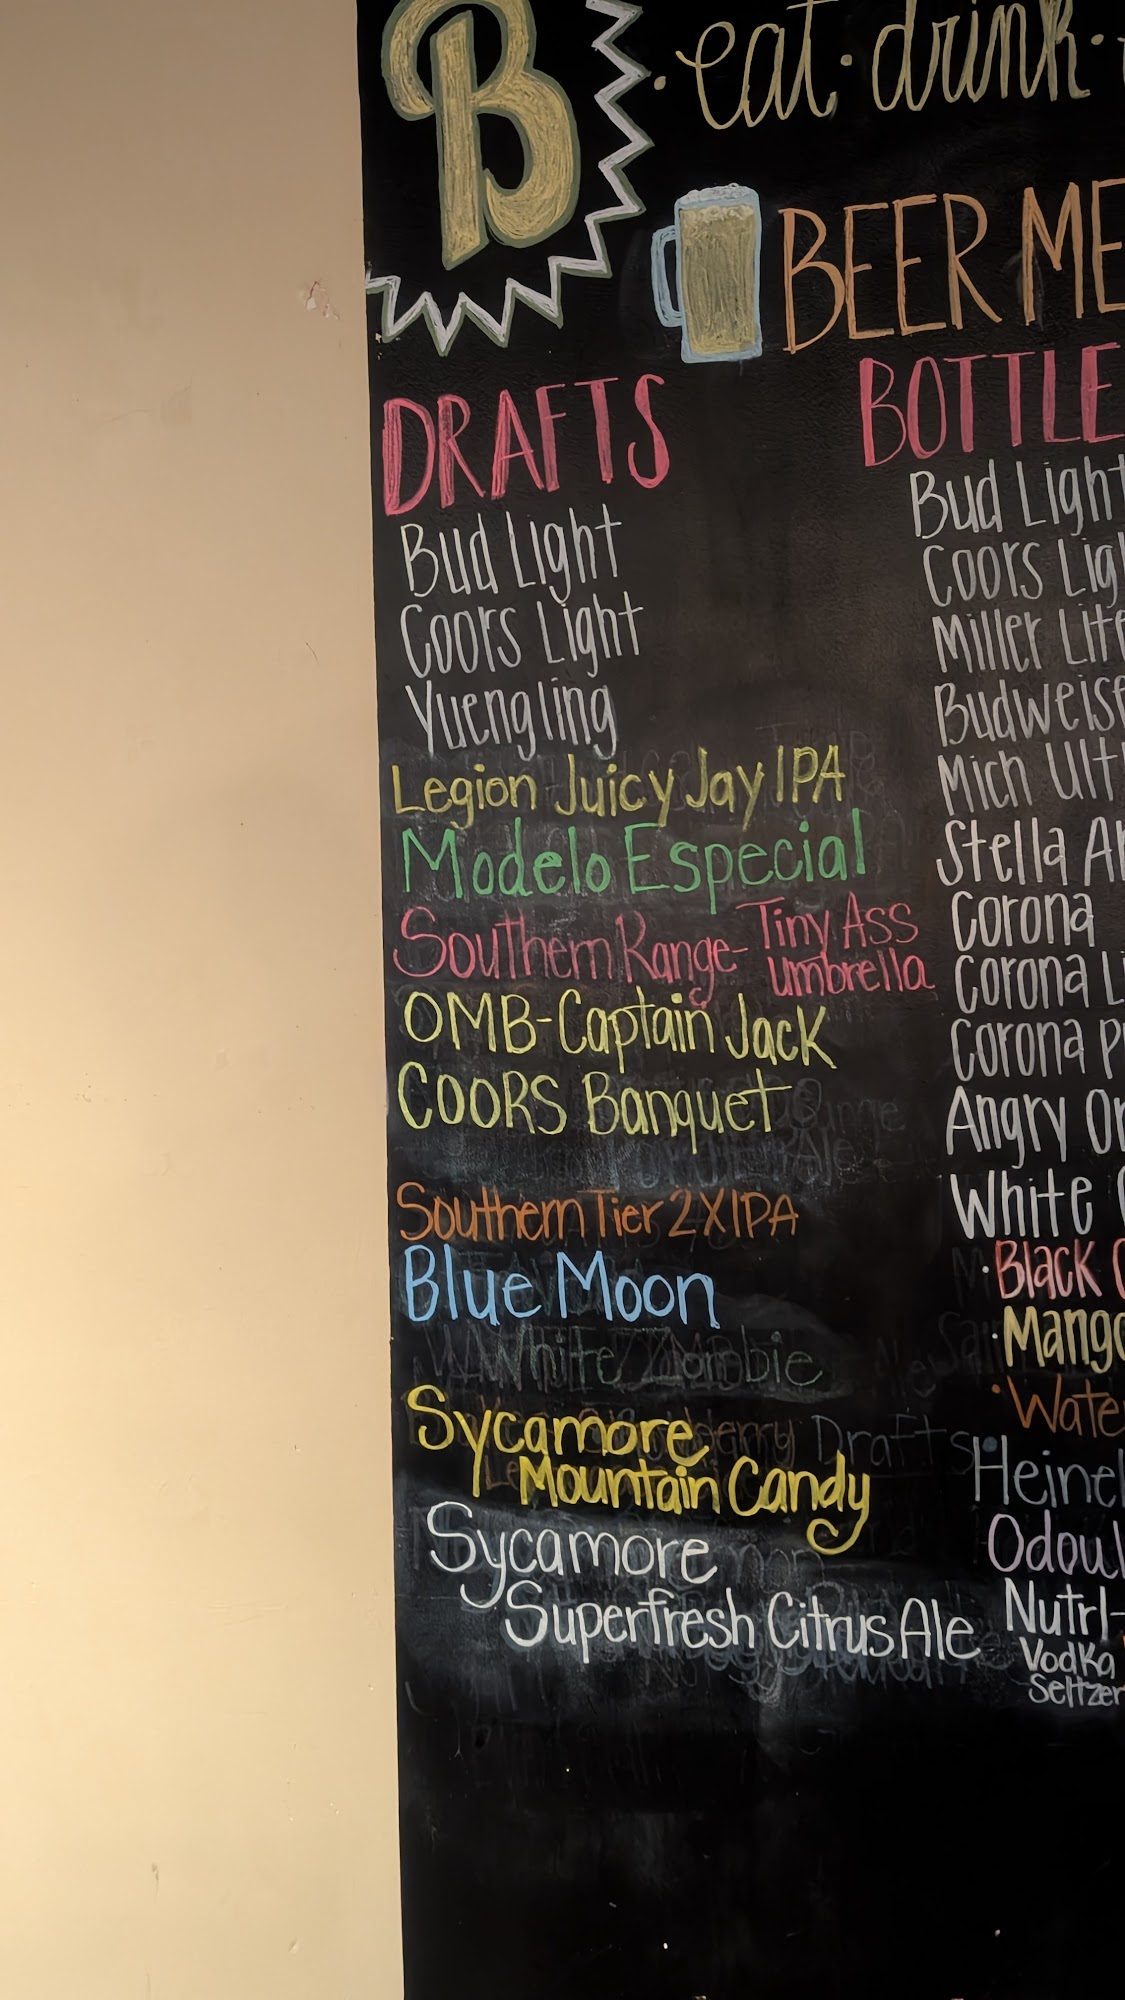 B
eat · drink ·
BEER ME
DRAFTS
Bud Light
Coors Light
Yuengling
Legion Juicy Jay IPA
Modelo Especial
Southern Range- Tiny Ass
umbrella
OMB-Captain Jack
COORS Banquet
Southern Tier 2X IPA
Blue Moon
White Zombie
Sycamore
Mountain Candy
Sycamore
Superfresh Citrus Ale
BOTTLE
Bud Light
Coors Lig
Miller Lite
Budweise
Mich Ult
Stella Ar
Corona
Corona Li
Corona Pr
Angry Or
White C
· Black C
· Mango
· Wate
Heine
Odoul
Nutrl-
Vodka
Seltzer